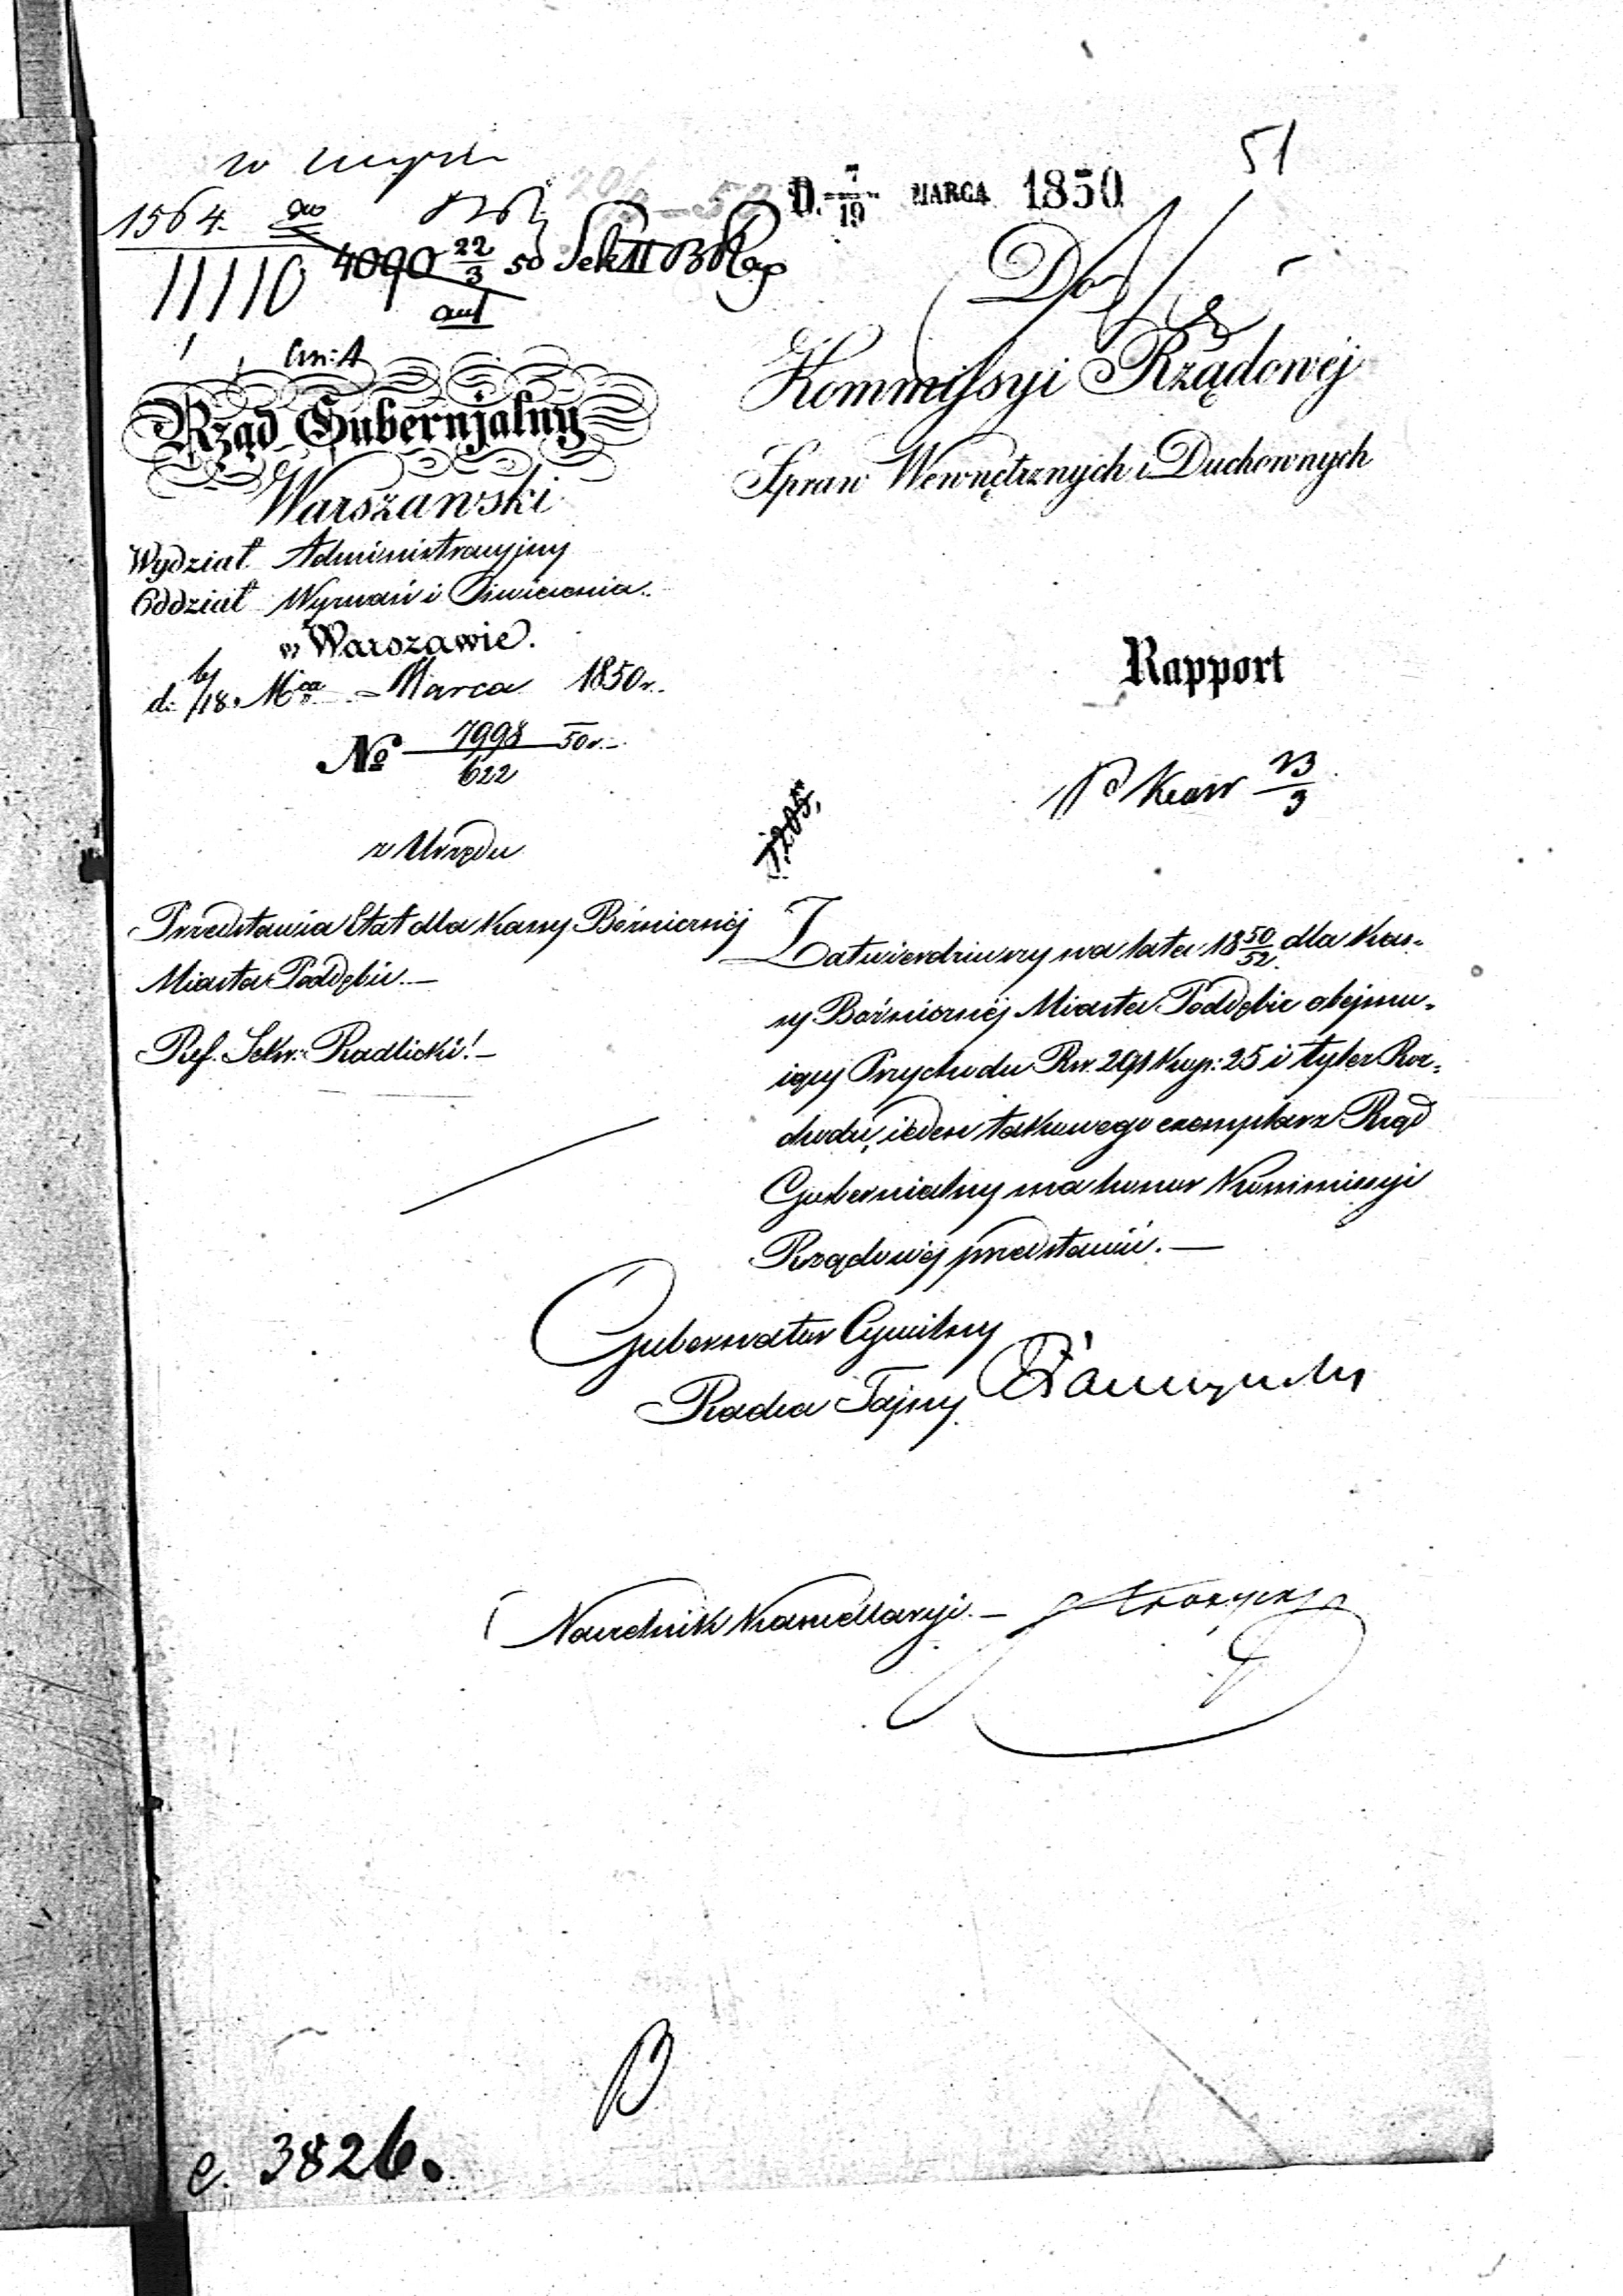 51
D. 7/19 MARCA 1850
1564.
11110
4090 22/3 50 Sekt II
Do
Kommissyi Rządowéj
Spraw Wewnętrznych i Duchownych
Rząd Gubernjalny
Warszawski
Wydział Administracyjny
Oddział Wyznań i Oświecenia.
w Warszawie.
d. 6/18 Mca Marca 1850 r.
No 7998/622 50 r.
Rapport
23/3
z Urzędu
Przedstawia Etat dla Kassy Bóżnicznéj
Miasta Poddębic.—
Ref. Sekr: Radlicki!—
Zatwierdziwszy na lata 18 50/52 dla Kas-
sy Bóżniczné́j Miasta Poddębic obejmu-
iący Przychodu Rsr. 291 Kop: 25 i tyleż Roz-
chodu, ieden takowego exemplarz Rząd
Gubernialny ma honor Kommissyi
Rządowéj przedstawić.—
Gubernator Cywilny
Radca Tajny
Naczelnik Kancellaryi.—
e. 3826.